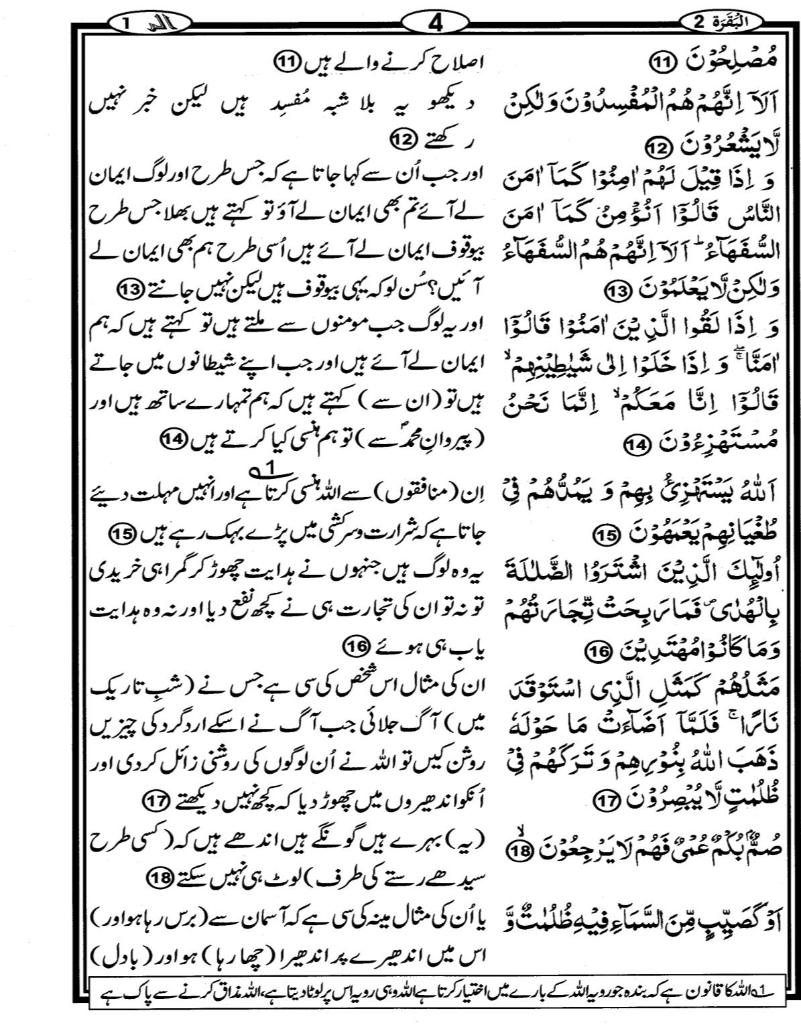 البقرة 2
4
الٓمّٓ 1
مُصْلِحُوْنَ 11
اَلَآ اِنَّهُمْ هُمُ الْمُفْسِدُوْنَ وَلٰكِنْ
لَّا يَشْعُرُوْنَ 12
وَ اِذَا قِيْلَ لَهُمْ اٰمِنُوْا كَمَآ اٰمَنَ
النَّاسُ قَالُوْٓا اَنُؤْمِنُ كَمَآ اٰمَنَ
السُّفَهَآءُ ؕ اَلَآ اِنَّهُمْ هُمُ السُّفَهَآءُ
وَلٰكِنْ لَّا يَعْلَمُوْنَ 13
وَ اِذَا لَقُوا الَّذِيْنَ اٰمَنُوْا قَالُوْٓا
اٰمَنَّا ۖۚ وَ اِذَا خَلَوْا اِلٰى شَيٰطِيْنِهِمْ ۙ
قَالُوْٓا اِنَّا مَعَكُمْ ۙ اِنَّمَا نَحْنُ
مُسْتَهْزِءُوْنَ 14
اَللّٰهُ يَسْتَهْزِئُ بِهِمْ وَ يَمُدُّهُمْ فِيْ
طُغْيَانِهِمْ يَعْمَهُوْنَ 15
اُولٰٓئِكَ الَّذِيْنَ اشْتَرَوُا الضَّلٰلَةَ
بِالْهُدٰى ۪ فَمَا رَبِحَتْ تِّجَارَتُهُمْ
وَمَا كَانُوْا مُهْتَدِيْنَ 16
مَثَلُهُمْ كَمَثَلِ الَّذِى اسْتَوْقَدَ
نَارًا ۚ فَلَمَّآ اَضَآءَتْ مَا حَوْلَهٗ
ذَهَبَ اللّٰهُ بِنُوْرِهِمْ وَ تَرَكَهُمْ فِيْ
ظُلُمٰتٍ لَّا يُبْصِرُوْنَ 17
صُمٌّۢ بُكْمٌ عُمْيٌ فَهُمْ لَا يَرْجِعُوْنَ ۙ 18
اَوْ كَصَيِّبٍ مِّنَ السَّمَآءِ فِيْهِ ظُلُمٰتٌ وَّ
اصلاح کرنے والے ہیں 11
دیکھو یہ بلا شبہ مُفسِد ہیں لیکن خبر نہیں
رکھتے 12
اور جب اُن سے کہا جاتا ہے کہ جس طرح اور لوگ ایمان
لے آئے تم بھی ایمان لے آؤ تو کہتے ہیں بھلا جس طرح
بیوقوف ایمان لے آئے ہیں اُسی طرح ہم بھی ایمان لے
آئیں؟ سُن لو کہ یہی بیوقوف ہیں لیکن نہیں جانتے 13
اور یہ لوگ جب مومنوں سے ملتے ہیں تو کہتے ہیں کہ ہم
ایمان لے آئے ہیں اور جب اپنے شیطانوں میں جاتے
ہیں تو (ان سے) کہتے ہیں کہ ہم تمہارے ساتھ ہیں اور
(پیروانِ محمدؐ سے) تو ہم ہنسی کیا کرتے ہیں 14
اِن (منافقوں) سے اللہ ہنسی کرتا ہے 1؎ اور انہیں مہلت دیئے
جاتا ہے کہ شرارت و سرکشی میں پڑے بہک رہے ہیں 15
یہ وہ لوگ ہیں جنہوں نے ہدایت چھوڑ کر گمراہی خریدی
تو نہ تو ان کی تجارت ہی نے کچھ نفع دیا اور نہ وہ ہدایت
یاب ہی ہوئے 16
ان کی مثال اس شخص کی سی ہے جس نے (شبِ تاریک
میں) آگ جلائی جب آگ نے اسکے اردگرد کی چیزیں
روشن کیں تو اللہ نے اُن لوگوں کی روشنی زائل کر دی اور
اُنکو اندھیروں میں چھوڑ دیا کہ کچھ نہیں دیکھتے 17
(یہ) بہرے ہیں گونگے ہیں اندھے ہیں کہ (کسی طرح
سیدھے رستے کی طرف) لوٹ ہی نہیں سکتے 18
یا اُن کی مثال مینہ کی سی ہے کہ آسمان سے (برس رہا ہو اور)
اس میں اندھیرے پر اندھیرا (چھا رہا) ہو اور (بادل)
1؎ اللہ کا قانون ہے کہ بندہ جو رویہ اللہ کے بارے میں اختیار کرتا ہے اللہ وہی رویہ اس پر لوٹا دیتا ہے، اللہ مذاق کرنے سے پاک ہے